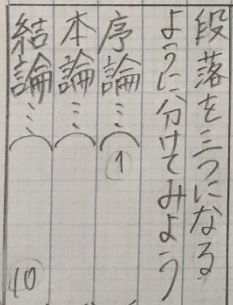 段落を三つになる
ように分けてみよう
序論…(1
本論…(
結論…(10